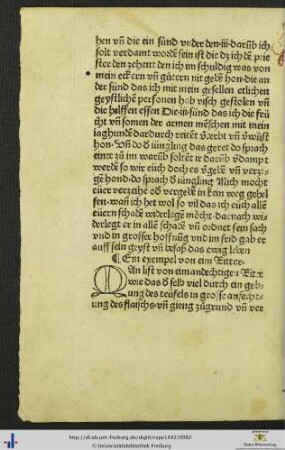 hen vñ die ein sünd vnder den·iii·darūb ich
solt verdamt wordē sein ist die dz ich dē prie
ster den zehent den ich im schuldig was von
mein eckern vñ gütern nit gebē hon·die an
der sünd das ich mit mein gesellen etlichen
geystlichē personen hab visch gestolen vñ
die helffen essen Die·iii·sünd das ich die frü
cht vñ somen der armen mēschen mit mein
iaghundē dardurch reitēt vderbt vñ vwüst
hon·Vñ do d iüngling das geret do sprach
einer zū im warūb soltēt ir darūb vdampt
werdē so wir euch doch es vgebē vñ verzi-
gē hond·do sprach d iüngling Auch mocht
euer verzeihē od vergebē in kein weg gehel
fen·wañ ich het wol so vil das ich euch allē
euern schadē widerlegē möcht·darnach wi-
derlegt er in allē schadē vñ ordnet sein sach
vnd in grosser hoffnūg vnd im frid gab er
auff sein geyst vñ besaß das ewig leben
¶ Ein exempel von eim Ritter·
MAn list von eim andechtigē Ritter
wie das d selb viel durch ein geb-
ung des teüfels in grosse anfecht-
ung des flaischs·vñ gieng zūgrund vñ ver
http://dl.ub.uni-freiburg.de/diglit/rupe1492/0082
© Universitätsbibliothek Freiburg